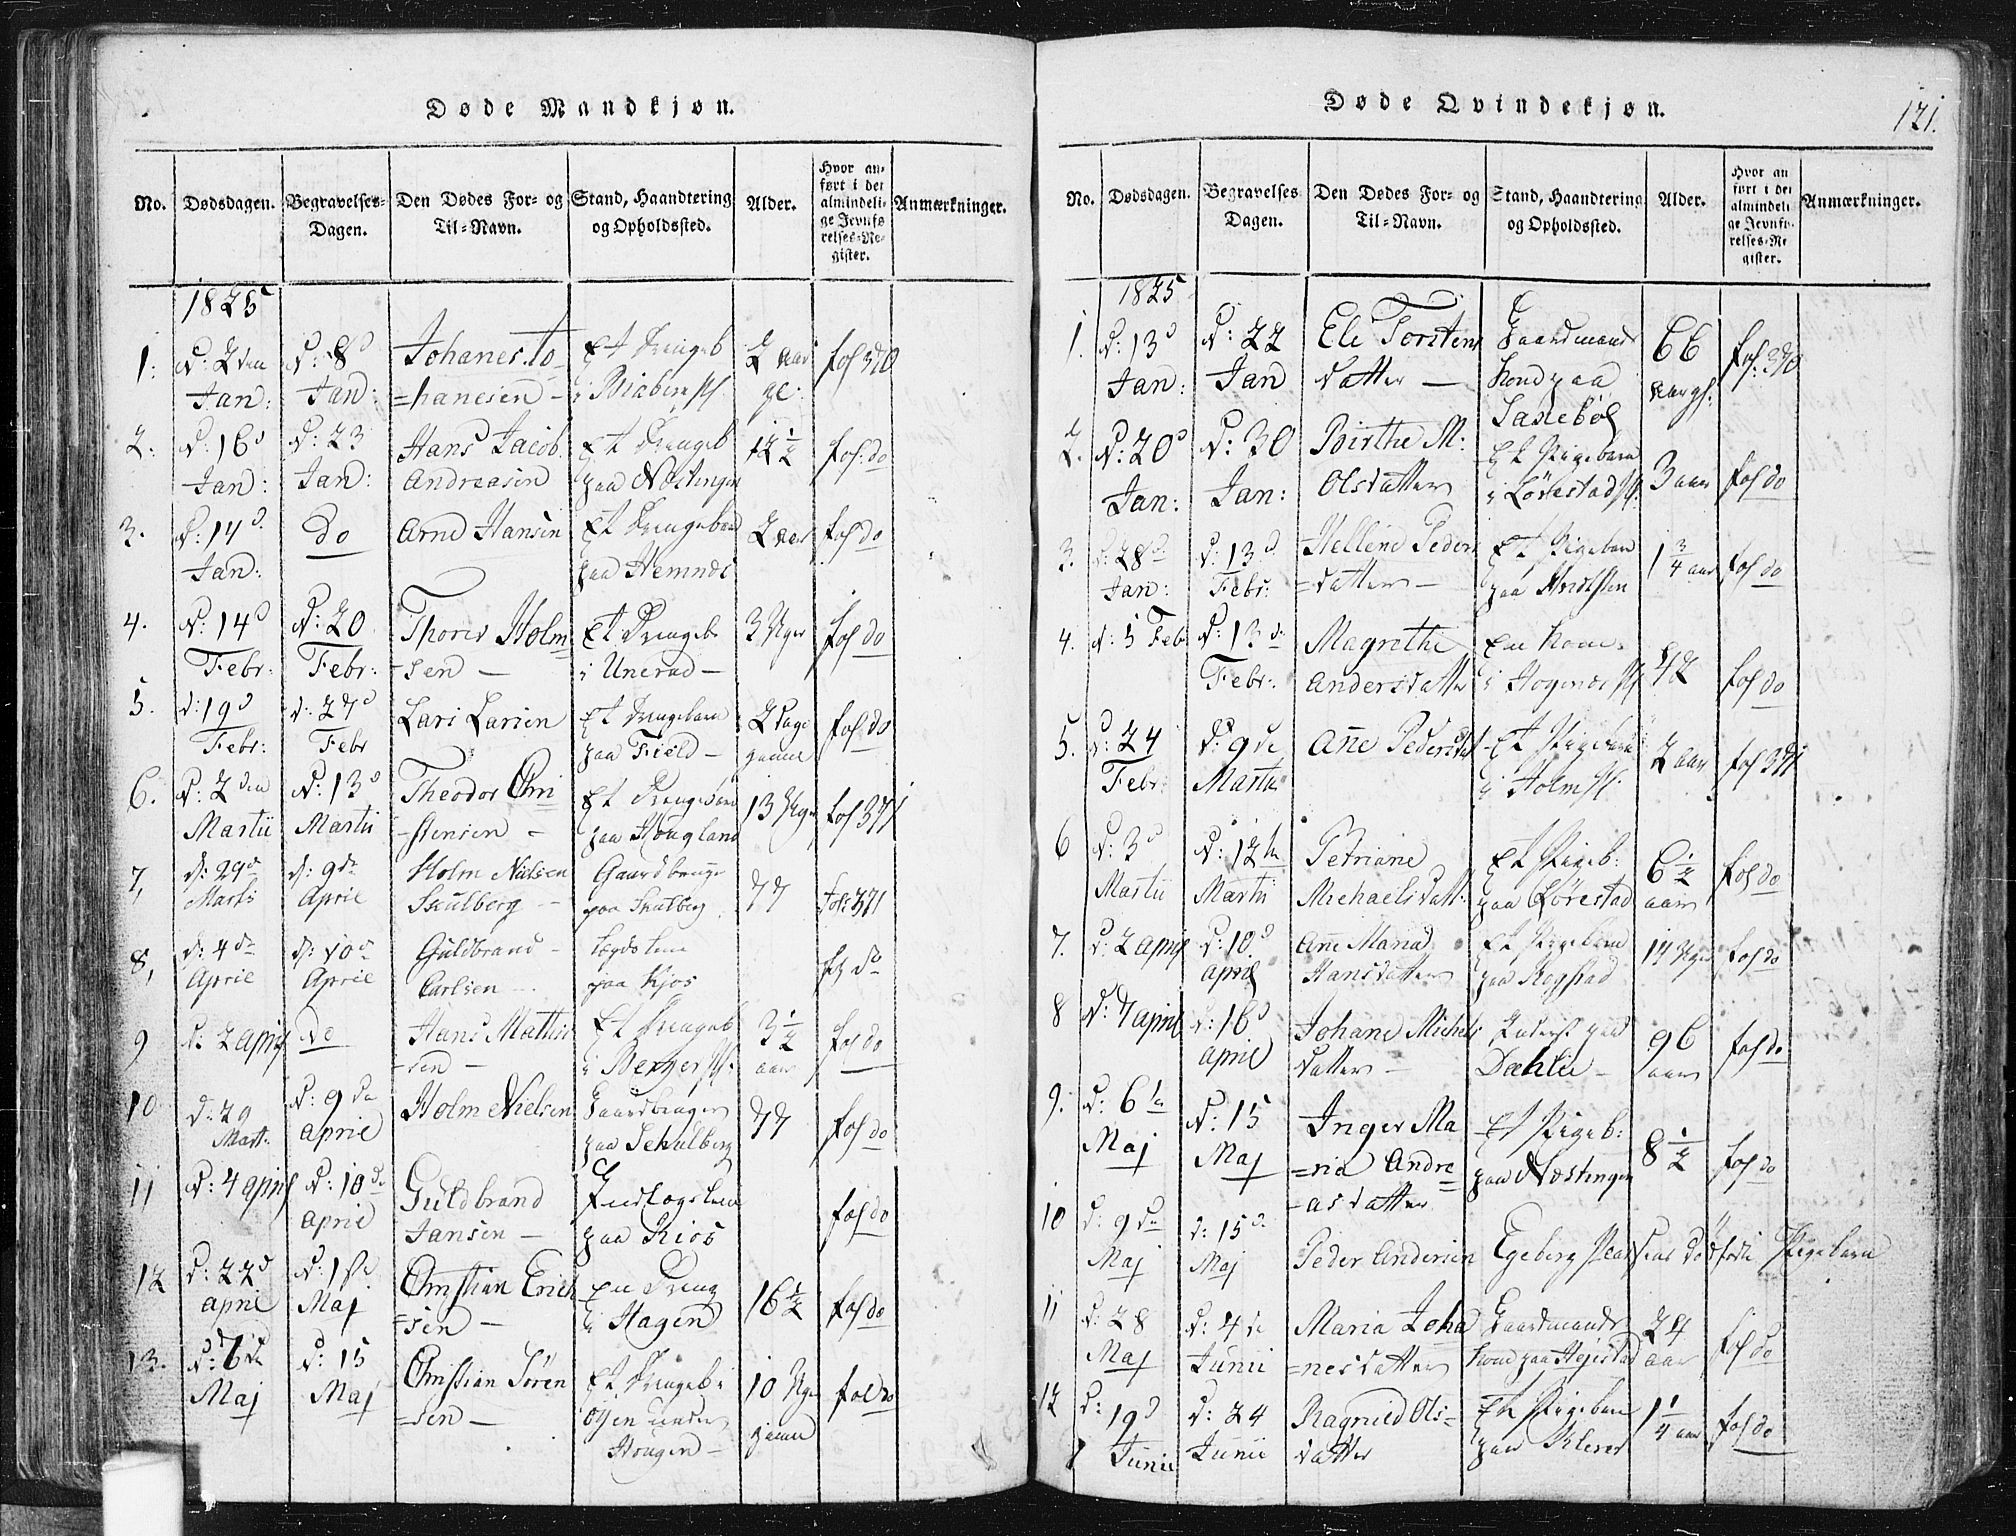 Døde Mandkjøn.
No. Dødsdagen. Begravelses-Dagen. Den Dødes For- og Til-Navn. Stand, Haandtering og Opholdssted. Alder. Hvor anført i det almindelige Jevnførelses-Register. Anmærkninger.
1825
1. d: 2den Jan: d: 8d Jan: Johanes Johanesen Et Drengeb i 2 Aar fol 370
2. d: 16d Jan: d: 23 Jan: Hans Jacob Andreasen Et Drengeb paa Nöstingen 12 1/2 fol: do
3. d: 14d Jan: do Arne Hansen Et Drengebarn paa Hemnæs 2 Aar fol do
4. d: 14d Febr: d: 20 Febr: Thorer Holmsen Et Drengeb i Unerud 3 Uger fol do
5. d: 19d Febr: d: 27d Febr Lars Larsen Et Drengebarn paa Field 2 Dage gammel fol do
6. d: 2den Martii d: 13d Martii Theodor Christensen Et Drengebarn paa Hougland 13 Uger fol 371
7, d: 29d Marts d: 9de April Holm Nielsen Skulberg Gaardbruger paa Skulberg 77 fol: 371
8, d: 4de April d: 10d April Guldbrand Carlsen Lægdslem paa Kjos fl do
9 d: 2 April do Hans Mathisen Et Drengeb i Berger 3 1/2 aar fol do
10 d: 29 Mart: d: 9de April Holm Nielsen Gaardbruger paa Schulberg 77 fol do
11 d: 4 April d: 10de April Guldbrand Jansen Indlogslem paa Kios fol do
12 d: 22d April d: 1ste Maj Christian Ericksen En Dreng i Hagen 16 1/2 fol do
13. d: 6te Maj d: 15 Maj Christian Sörensen Et Drengeb: under Hougen 10 Uger gammel fol do
Døde Qvindekjøn.
121.
No. Dødsdagen. Begravelses Dagen. Den Dødes For- og Til-Navn. Stand, Haandtering og Opholdssted. Alder. Hvor anført i det almindelige Jevnførelses-Register. Anmærkninger.
1825
1. d: 13d Jan: d: 22 Jan Eli Torstensdatter Gaardmands Kone paa 66 Aar gl. fol: 370
2. d: 20d Jan: d: 30 Jan: Birthe M: Olsdatter Et Pigebarn i Lörestad 3 aar fol do
3. d: 28d Jan: d: 13d Febr: Hellene Pedersdatter Et Pigebarn paa 1 3/4 aar fol do
4. d: 5 Feb d: 13de Febr: Magrethe Andersdatter En Kone i 42 fol do
5. d: 24 Febr: d: 9de Martii Añe Pedersdat Et Pigebarn i Holm 2 aar fol 371
6 d: 3d Martii d: 12te Martii Petriane Michaelsdatt: Et Pigeb: paa Lörestad 6 1/2 aar fol do
7. d: 2 April d: 10d April Añe Maria Hansdatter Et Pigebarn paa Rogstad 14 Uger fol do
8 d: 7 April d: 16d April Johane Michelsdatter Dæhlie 96 aar fol do
9. d: 6te Maj d: 15 Maj Inger Maria Andreasdatter Et Pigeb: paa Nöstingen 8 1/2 fol do
10 d: 9de Maj d: 15d Maj Peder Andersen Egeberg Dödfödt Pigebarn
11 d: 28 Maj d: 4de Junii Maria Johanesdatter Gaardmands Kone paa 24 aar fol do
12 d: 19d Junii d: 24 Junii Ragnild Olsdatter Et Pigebarn paa 1 1/4 aar fol do